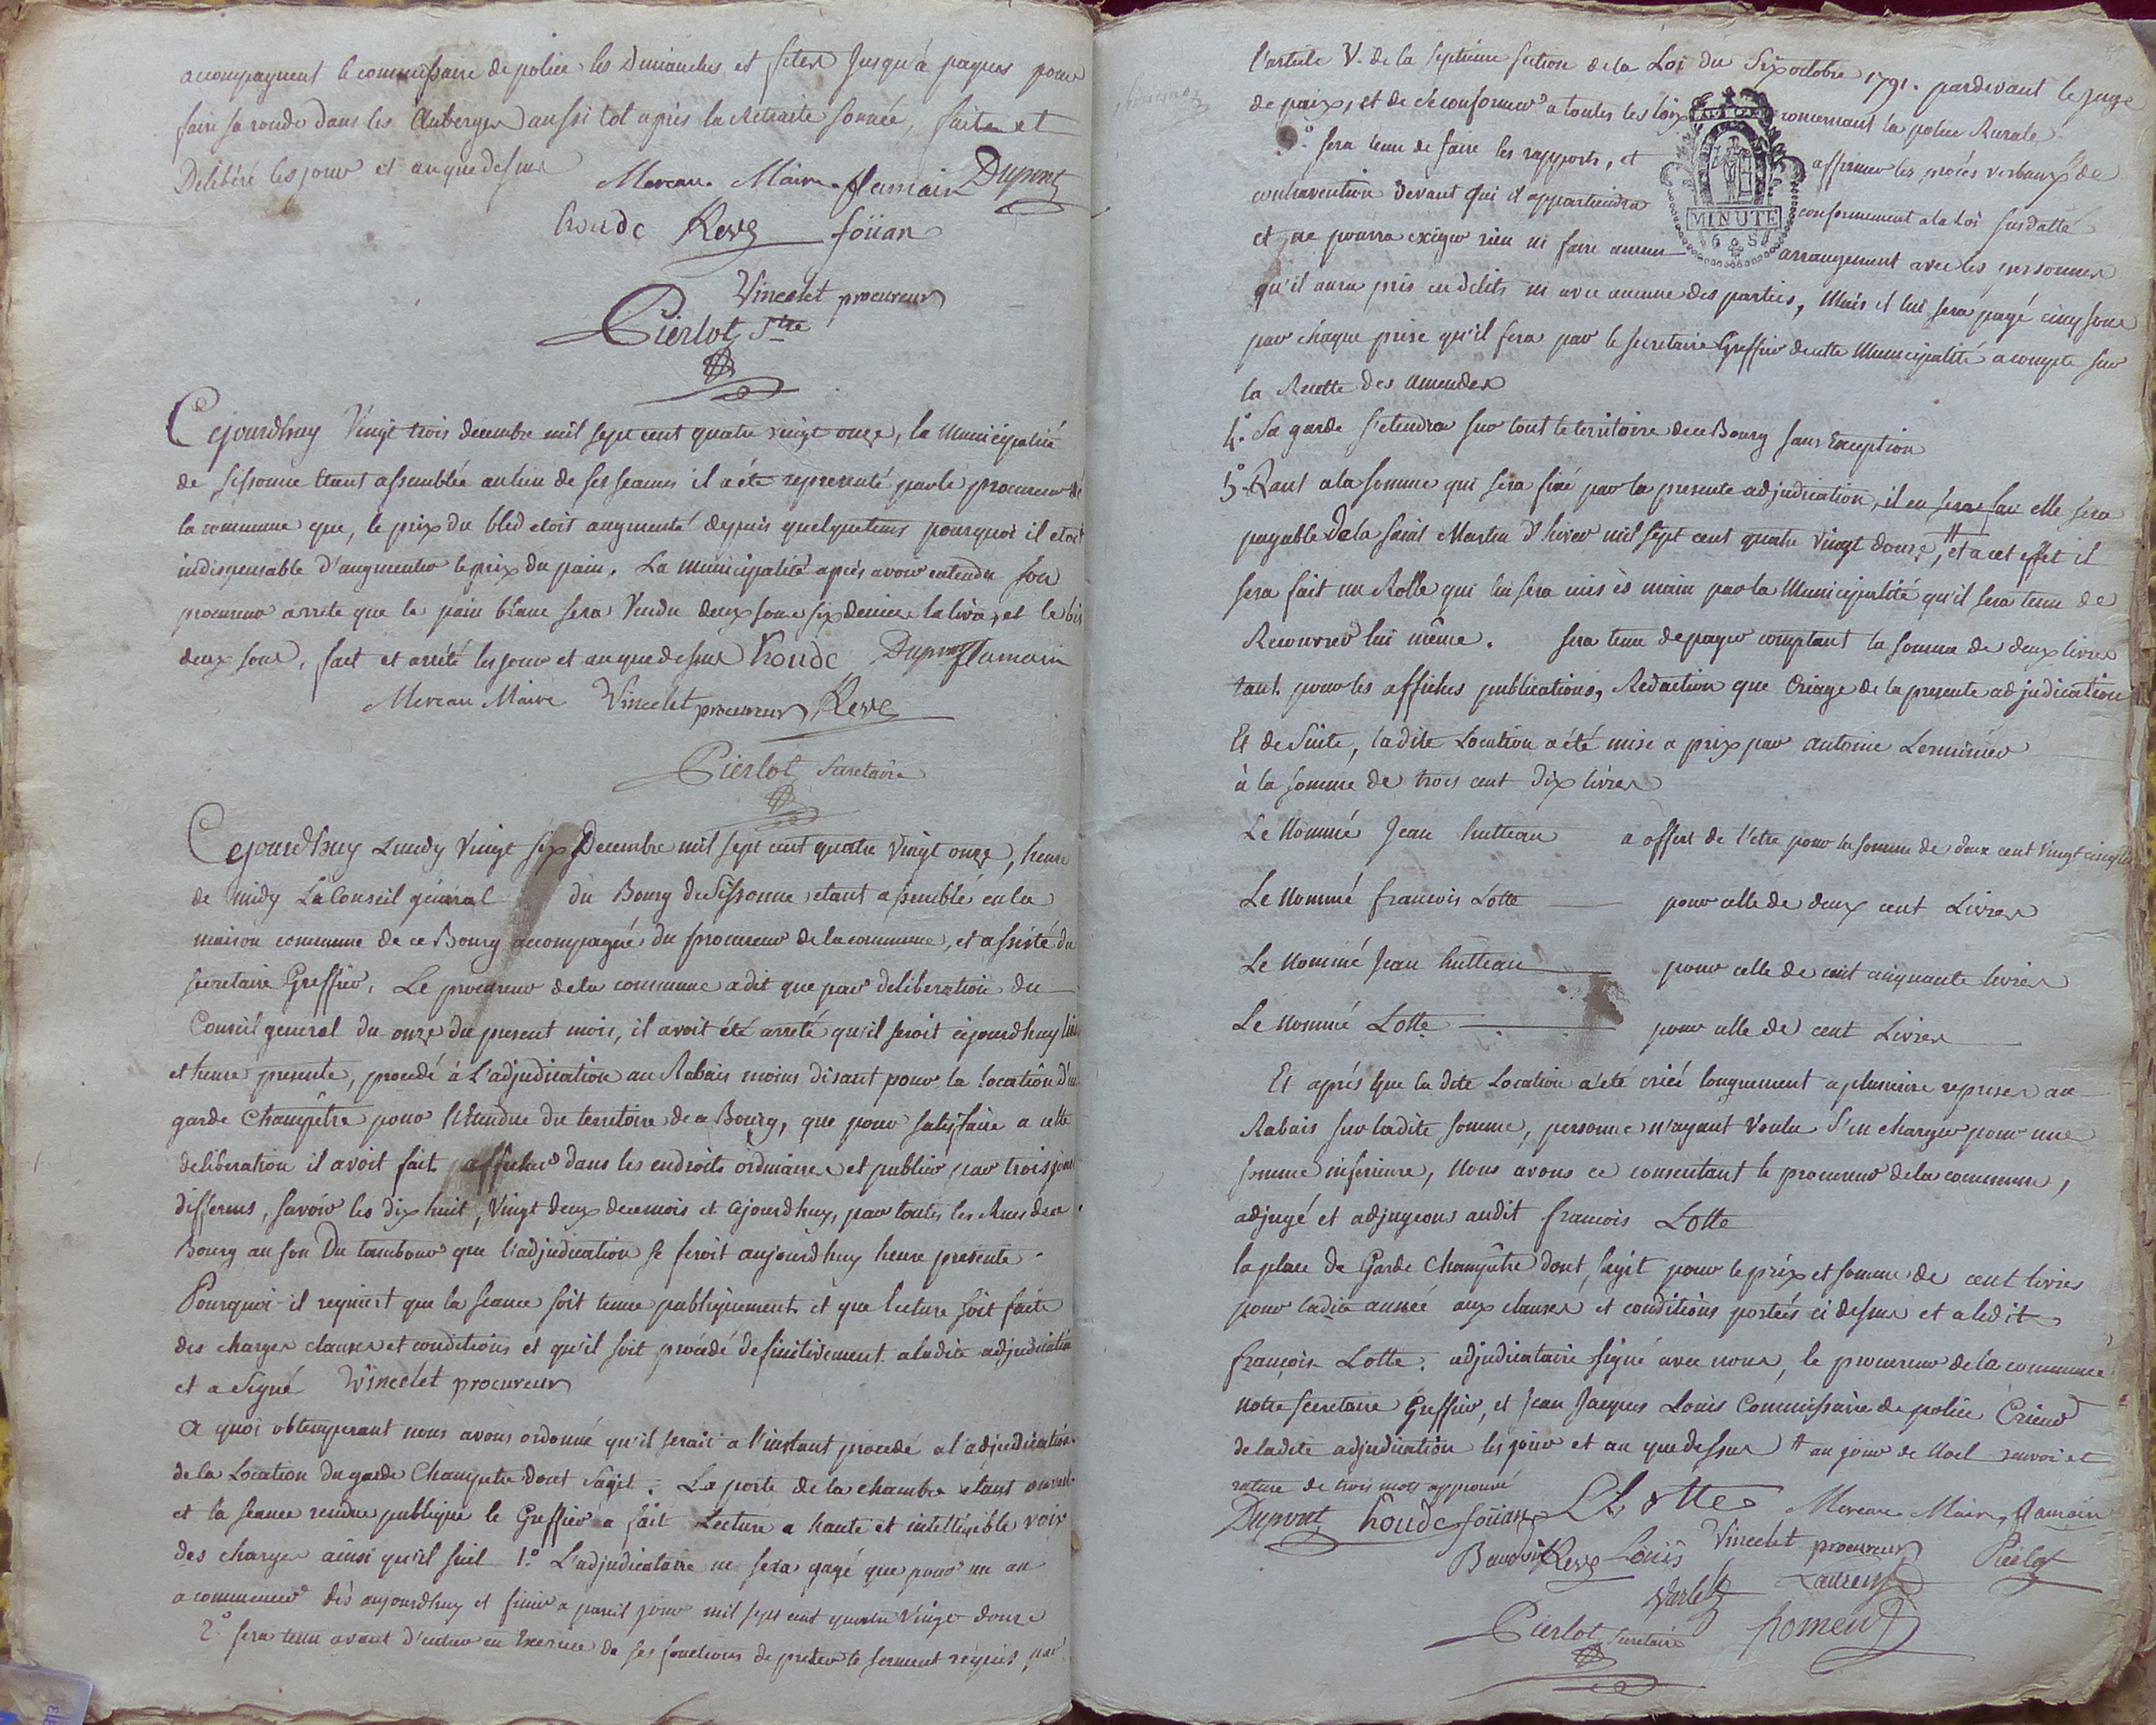 accompagnent le commissaire de police les Dimanches et fetes Jusqu'à paques pour
faire sa ronde dans les Auberges aussi tot après la Retraite sonnée, fait et
Deliberé les jour et an que dessus Mereau Maire flamain Dupont
houde Reve foüan
Vincelet procureur
Pierlot Stre
Cejourdhuy Vingt trois decembre mil sept cent quatre vingt onze, la Municipalité
de Sissonne Etant assemblée au lieu de ses seances il a été representé par le procureur de
la commune que, le prix du bled etoit augmenté depuis quelque tems pourquoi il etoit
indispensable d'augmenter le prix du pain. La Municipalité après avoir entendu son
procureur arrete que le pain blanc sera Vendu deux sous six deniers la livre, et le bis
deux sous, fait et arrêté les jour et an que dessus houde Dupont flamain
Mereau Maire Vincelet procureur Reve
Pierlot Secretaire
Cejourdhuy Lundy Vingt six Decembre mil sept cent quatre vingt onze, heure
de midy Le Conseil général du Bourg de Sissonne etant assemblé en la
maison commune de ce Bourg accompagné du procureur de la commune, et assisté du
secretaire Greffier. Le procureur de la commune a dit que par deliberation du
Conseil general du onze du present mois, il avoit été arreté qu'il seroit cejourdhuy lieu
et heure presente, procedé à L'adjudication au Rabais moins disant pour la location d'un
garde Champêtre pour l'Etendue du territoire de ce Bourg, que pour satisfaire a cette
deliberation il avoit fait afficher dans les endroits ordinaires et publier par trois jours
differens, savoir les dix huit, Vingt deux de ce mois et cejourdhuy, par toutes les Rues de ce
Bourg au son Du tambour que l'adjudication se feroit aujourdhuy heure presente.
Pourquoi il requiert que la seance soit tenue publiquement et que lecture soit faite
des charges clauses et conditions et qu'il soit procédé definitivement a ladite adjudication
et a Signé Vincelet procureur
A quoi obtemperant nous avons ordonné qu'il serait a l'instant procedé a l'adjudication
de la Location du garde Champetre dont S'agit. La porte de la chambre etant ouverte
et la seance rendue publique le Greffier a fait Lecture a haute et intelligible voix
des charges ainsi qu'il suit 1.º L'adjudicataire ne sera gagé que pour un an
a commencer dès aujourdhuy et finir a pareil jour mil sept cent quatre Vingt douze
2.º sera tenu avant d'entrer en Exercice de ses fonctions de preter le serment requis par
l'article V. de la septième section de la Loi du Six octobre 1791. pardevant le Juge
de paix, et de se conformer a toutes les loix concernant la police Rurale
3.º sera tenu de faire les rapports, et affirmer les procès verbaux de
contravention devant qui il appartiendra conformement a la Loi susdatte
MINUTE
et ne pourra exiger rien ni faire aucun arrangement avec les personnes
qu'il aura pris en delits ni avec aucune des parties, Mais il lui sera payé cinq sous
par chaque prise qu'il fera par le secretaire Greffier de cette Municipalité a compte sur
la Recette des amendes
4.º Sa garde s'etendra sur tout le territoire de ce Bourg sans Exception
5.º Quant a la somme qui sera fixé par la presente adjudication, il en sera fa elle sera
payable de la Saint Martin D'hiver mil sept cent quatre Vingt douze, # et a cet effet il
sera fait un Rolle qui lui sera mis ès main par la Municipalité qu'il sera tenu de
Recouvrer lui même. sera tenu de payer comptant la somme de deux livres
tant pour les affiches publications, Redaction que Criage de la presente adjudication
Et de Suite, ladite Location a été mise a prix par antoine Lerminier
à la somme de trois cent Dix livres
Le Nommé Jean hutteau a offert de l'etre pour la somme de deux cent Vingt cinq
Le Nommé francois Lotte pour celle de deux cent Livres
Le Nommé Jean hutteau pour celle de cent cinquante livres
Le Nommé Lotte pour celle de cent Livres
Et après que ladite Location a été criée longuement a plusieurs reprises au
Rabais sur ladite somme, personne n'ayant Voulu S'en charger pour une
somme inferieure, Nous avons ce consentant le procureur de la commune,
adjugé et adjugeons audit francois Lotte
la place de Garde Champêtre dont s'agit pour le prix et somme de cent livres
pour ladite année aux clauses et conditions portées ci dessus et a ledit
françois Lotte adjudicataire signé avec nous, le procureur de la commune
notre secretaire Greffier, et Jean Jacques Louis Commissaire de police Crieur
de ladite adjudication les jour et an que dessus # au jour de Noel renvoi et
rature de trois mots approuvé
Dupont houde foüan Lotte Mereau Maire flamain
Reve Louis Vincelet procureur Pierlot
Varlet Laurent
Pierlot Secretaire